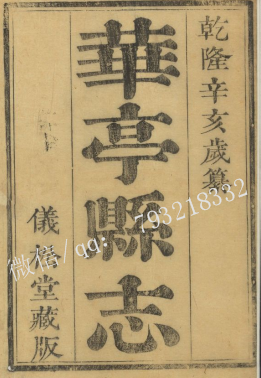 乾隆辛亥歲纂
華亭縣志
儀松堂藏版
微信/qq: 793218332